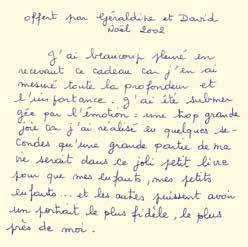 offert par Géraldine et David
Noël 2002
J'ai beaucoup pleuré en
recevant ce cadeau car j'en ai
mesuré toute la profondeur et
l'importance. J'ai été submer-
gée par l'émotion : une trop grande
joie car j'ai réalisé en quelques se-
condes qu'une grande partie de ma
vie serait dans ce joli petit livre
pour que mes enfants, mes petits
enfants... et les autres puissent avoir
un portrait le plus fidèle, le plus
près de moi.